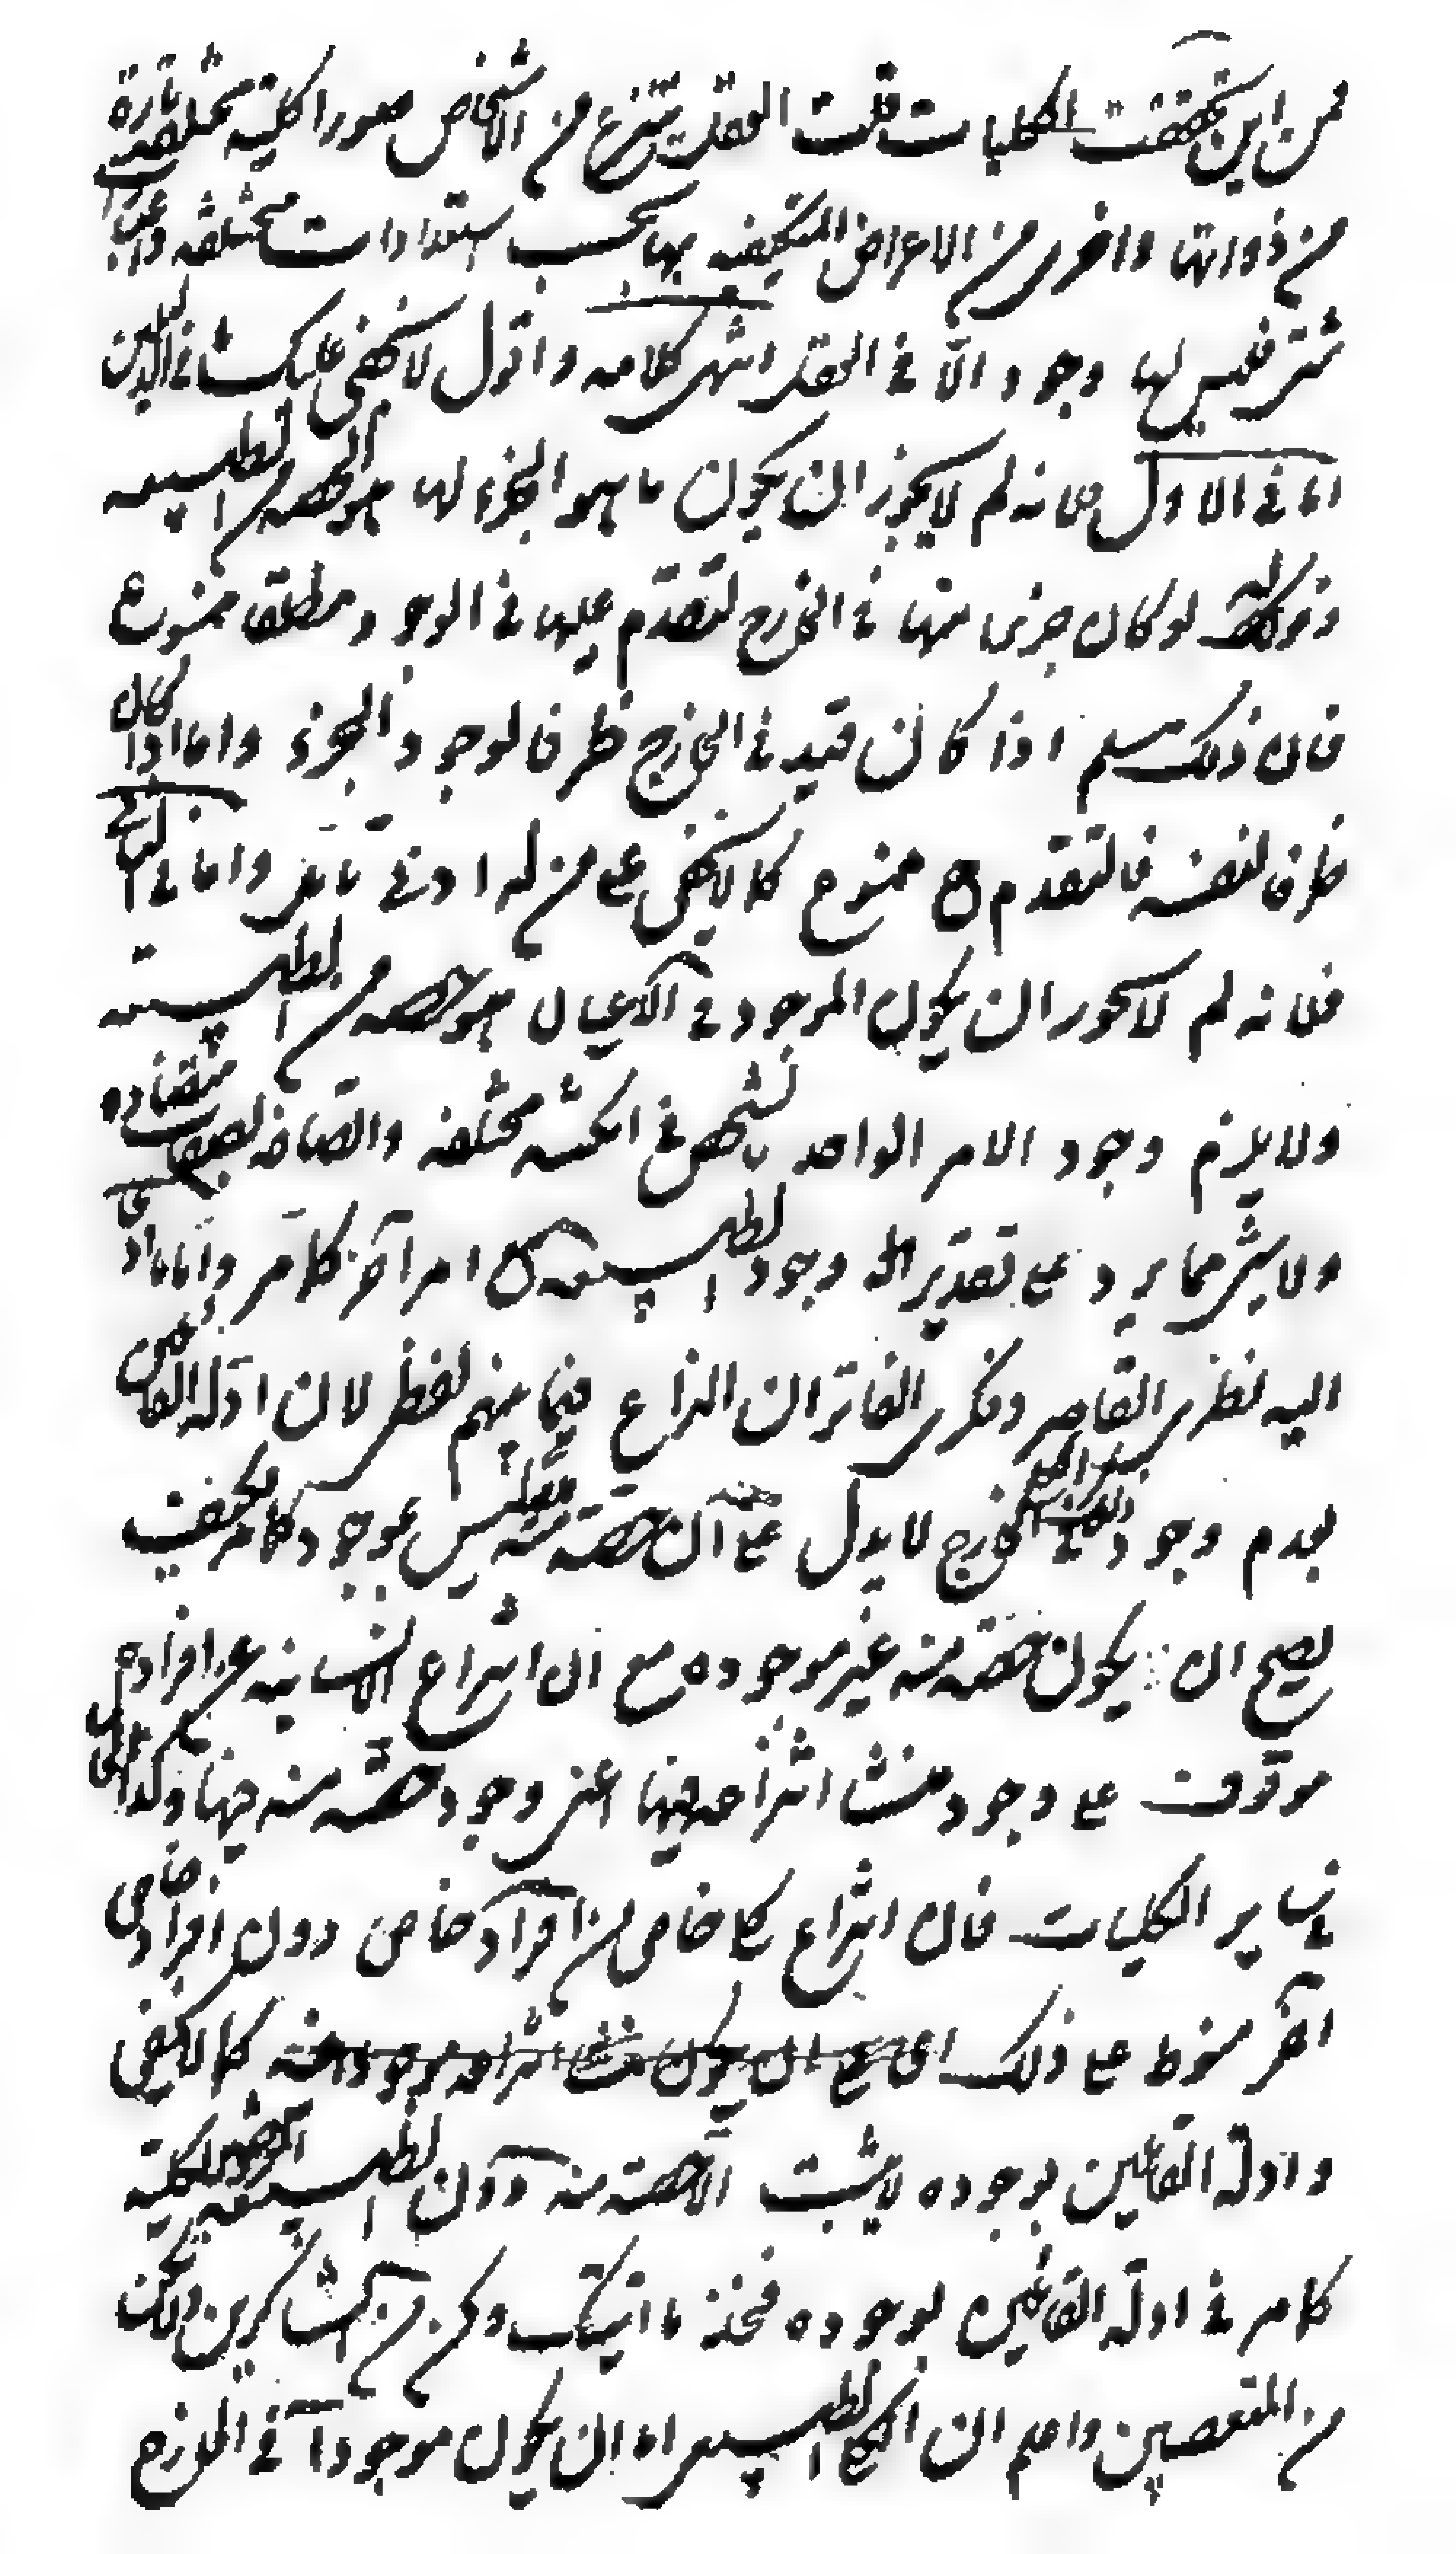 فمن اين تحققت الكليات قلت العقل ينتزع من الاشخاص صورا كلية مختلفة تارة
من ذواتها واخرى من الاعراض المتكيفه بها بحسب استعدادات مختلفه واعتبارات
شتى فليس لها وجود الا في العقل انتهى كلامه واقول لا يخفى عليك ما في الدليلين
اما في الاول فلانه لم لا يجوز ان يكون ما هو الجزء لها هو الحصه من الطبيعه
وقولك لو كان جزءا منها في الخارج لتقدم عليها في الوجود مطلقا ممنوع
فان ذلك مسلم اذا كان قيد في الخارج ظرفا لوجود الجزء واما اذا كان
ظرفا لنفسه فالتقدم ح ممنوع كما لا يخفى على من له ادنى تامل واما في الثاني
فلانه لم لا يجوز ان يكون الموجود في الاعيان هو حصه من الطبيعة
ولا يلزم وجود الامر الواحد بالشخص في امكنة مختلفه واتصافه بصفات متضاده
ولا شئ مما يرد على تقدير وجود الطبيعه امرا آخر كما مر واما ما ادى
اليه نظري القاصر وفكري الفاتر ان النزاع فيما بينهم لفظي لان ادلة القائلين
بعدم وجود الكلي الطبيعي في الخارج لا يدل على ان حصة منه ليس بموجود كما مر فكيف
يصح ان يكون حصة منه غير موجوده مع ان انتزاع الانسانيه عن افراده
موقوف على وجود منشا انتزاعه فيها اعنى وجود حصة منه فيها وكذا الحال
في ساير الكليات فان انتزاع كلي خاص من افراد خاص دون افراد خاص
آخر منوط على ذلك اى على ان يكون منشا انتزاعه موجودا فيه كما لا يخفى
وادلة القائلين بوجوده لا يثبت الا حصة منه دون الطبيعه المعروضة للكلية
كما مر في ادلة القائلين بوجوده فخذ ما اتيتك وكن من الشاكرين ولا تكن
من المتعصبين واعلم ان الكلي الطبيعي اما ان يكون موجودا في الخارج